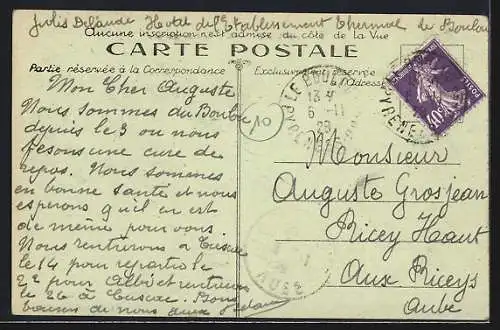 Julis Delande Hotel de l'Etablissement Thermal du Boulou
Aucune inscription n'est admise du côté de la Vue
CARTE POSTALE
Partie réservée à la Correspondance
Exclusivement réservée à l'Adresse
Mon Cher Auguste
Nous sommes du Boulou
depuis le 3 ou nous
fesons une cure de
repos. Nous sommes
en bonne santé et nous
esperons qu'il en est
de meme pour vous.
Nous rentrerons a
le 14 pour repartir le
22 pour Albi et rentrerons
le 26 a Bons
baisers de nous deux
LE BOULOU
13
6 - 11
PYRENEES
10
POSTES
40c
Monsieur
Auguste Grosjean
Ricey Haut
Aux Riceys
Aube
AUBE